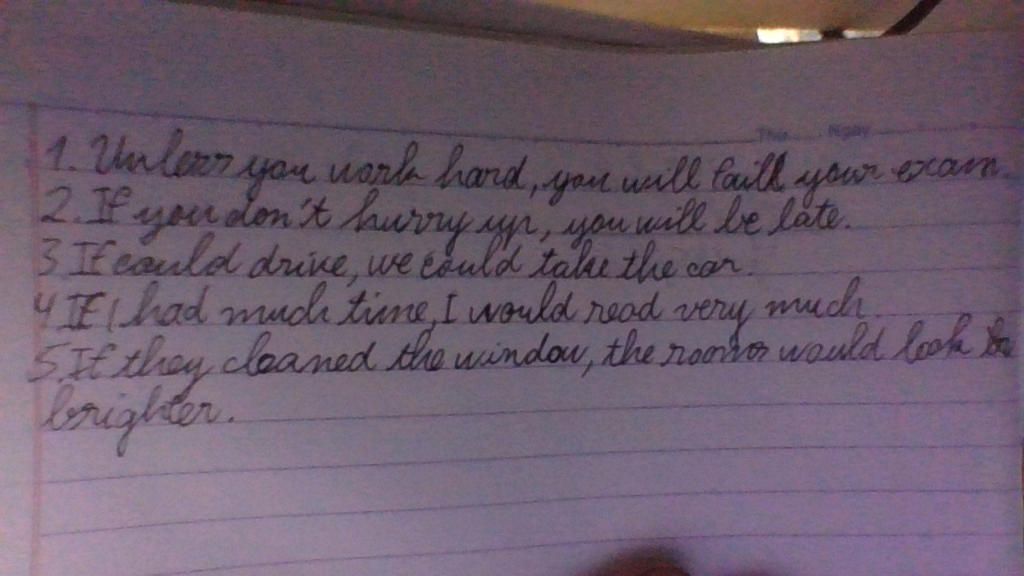 Thứ Ngày
1. Unless you work hard, you will faill your exam.
2. If you don't hurry up, you will be late.
3 If could drive, we could take the car.
4 If I had much time, I would read very much.
5. If they cleaned the window, the rooms would look
brighter.